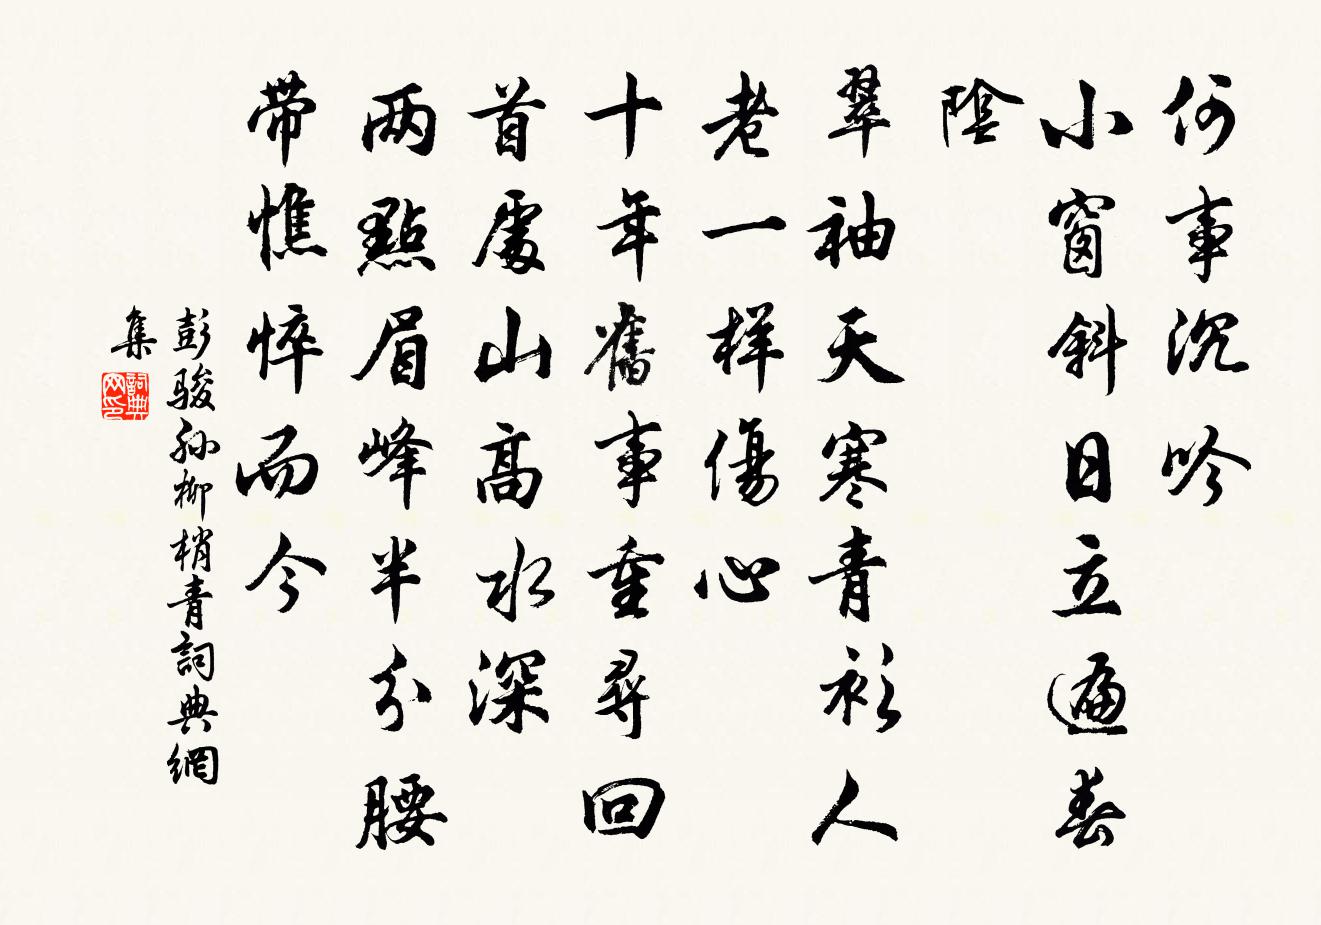 何事沉吟
小窗斜日立遍春
陰
翠袖天寒青衫人
老一样傷心
十年舊事重尋回
首處山高水深
两點眉峰半分腰
带憔悴而今
彭骏孙柳梢青詞典網
集
詞典
网印